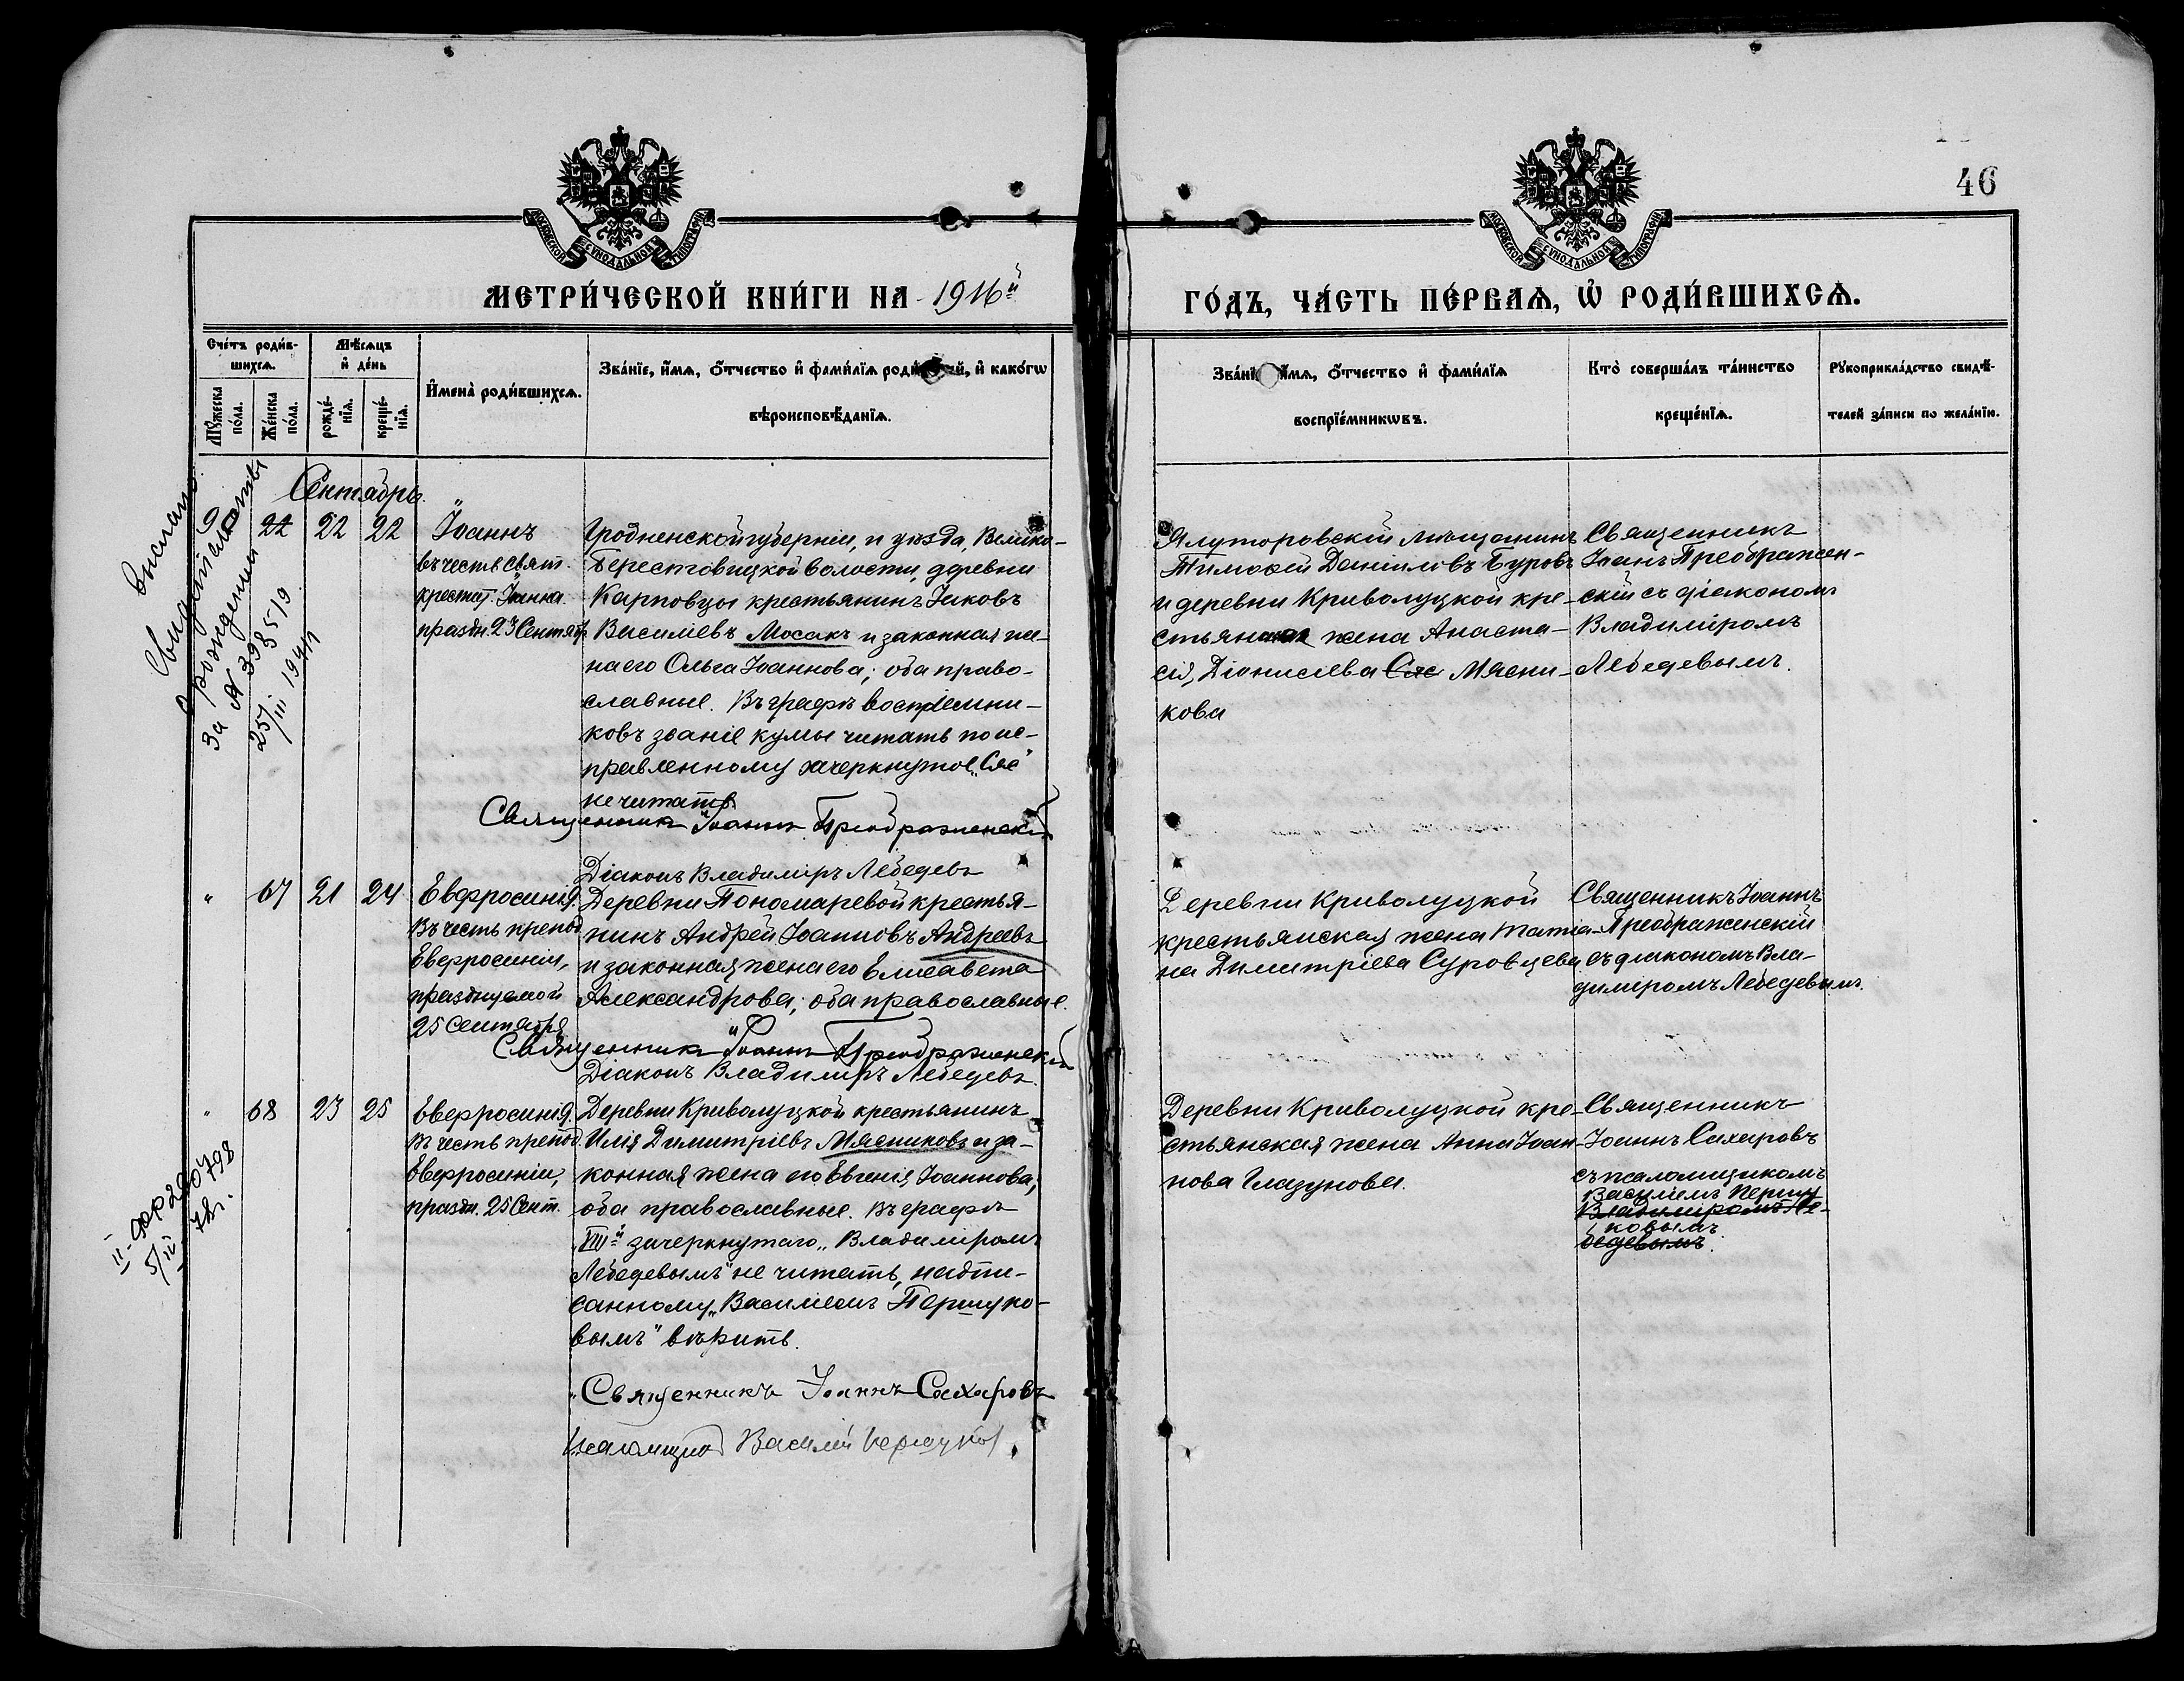 46
МОСКОВСКОЙ СѴНОДАЛЬНОЙ ТИПОГРАФІИ
МОСКОВСКОЙ СѴНОДАЛЬНОЙ ТИПОГРАФІИ
МЕТРИ́ЧЕСКОЙ КНИ́ГИ НА 1916й
ГО́ДЪ, ЧА́СТЬ ПЕ́РВАѦ, Ѡ҆ РОДИ́ВШИХСѦ.
Сче́тъ роди́в-
шихсѧ.
Мꙋ́жеска
по́ла.
Же́нска
по́ла.
Мѣ́сѧцъ
и҆ де́нь
рожде́-
нїѧ.
креще́-
нїѧ.
И҆мена̀ роди́вшихсѧ.
Зва́нїе, и҆́мѧ, ѻ҆́тчество и҆ фами́лїѧ роди́ ей, и҆ како́гѡ
вѣроисповѣ́данїѧ.
Зва́нї и҆́мѧ, ѻ҆́тчество и҆ фами́лїѧ
воспрїе́мникѡвъ.
Кто̀ соверша́лъ та́инство
креще́нїѧ.
Рꙋкоприкла́дство свидѣ́-
телей за́писи по жела́нїю.
Сентябрь.
Выслано
Свидетельство
о рождении
За № 398519
25/III 194
22
22
22
Іоаннъ
въ честь Свят.
крестит. Іоанна.
праздн. 23 Сентяб.
Гродненской губерніи, и уѣзда, Велико-
Берестовицкой волости, деревни
Карповцы крестьянинъ Іаковъ
Василіевъ Мосакъ и законная же-
на его Ольга Іоаннова; оба право-
славные. Въ графѣ воспріемни-
ковъ званіе кумы читать по ис-
правленному зачеркнутое „Сяс"
не читать.
Священникъ Іоаннъ Преображенскій
Діаконъ Владиміръ Лебедевъ
Ялуторовскій мѣщанинъ
Тимоѳей Даніиловъ Буровъ
и деревни Криволуцкой кре-
стьянская жена Анаста-
сія Діонисіева Сяс Мясни-
кова
Священникъ
Іоаннъ Преображен-
скій съ діакономъ
Владиміромъ
Лебедевымъ.
" 67 21 24
Евфросинія.
Въ честь препод.
Евфросиніи,
празднуемой
25 Сентября
Деревни Пономаревой крестья-
нинъ Андрей Іоанновъ Андреевъ
и законная жена его Елисавета
Александрова; оба православные.
Священникъ Іоаннъ Преображенскій
Діаконъ Владиміръ Лебедевъ.
Деревни Криволуцкой
крестьянская жена Татіа-
на Димитріева Суровцева
Священникъ Іоаннъ
Преображенскій
съ діакономъ Вла-
диміромъ Лебедевымъ.
" 68 23 25
Евфросинія.
Въ честь препод.
Евфросиніи,
праздн. 25 Сент.
Деревни Криволуцкой крестьянинъ
Илія Димитріевъ Мясниковъ и за-
конная жена его Евгенія Іоаннова;
оба православные. Въ графѣ
„VIIIй зачеркнутаго „Владиміромъ
Лебедевымъ" не читать, надпи-
санному „Василіемъ Першуко-
вымъ" вѣрить.
Священникъ Іоаннъ Сахаровъ
Псаломщикъ Василій Першуков.
Деревни Криволуцкой кре-
стьянская жена Анна Іоан-
нова Глазунова.
Священникъ
Іоаннъ Сахаровъ
съ псаломщикомъ
Василіемъ Першу
Владиміромъ Ле-
ковымъ
бедевымъ.